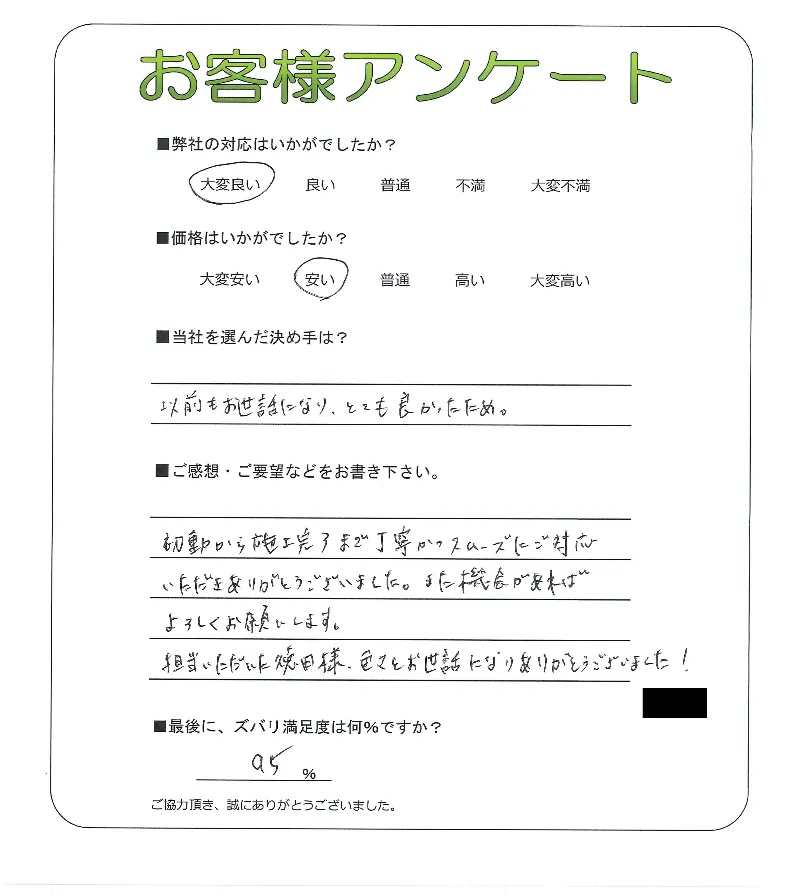 お客様アンケート
■弊社の対応はいかがでしたか？
大変良い 良い 普通 不満 大変不満
■価格はいかがでしたか？
大変安い 安い 普通 高い 大変高い
■当社を選んだ決め手は？
以前もお世話になり、とても良かったため。
■ご感想・ご要望などをお書き下さい。
初動から施工完了まで丁寧かつスムーズにご対応
いただきありがとうございました。また機会があれば
よろしくお願いします。
担当いただいた様、色々とお世話になりありがとうございました！
■最後に、ズバリ満足度は何％ですか？
95 %
ご協力頂き、誠にありがとうございました。